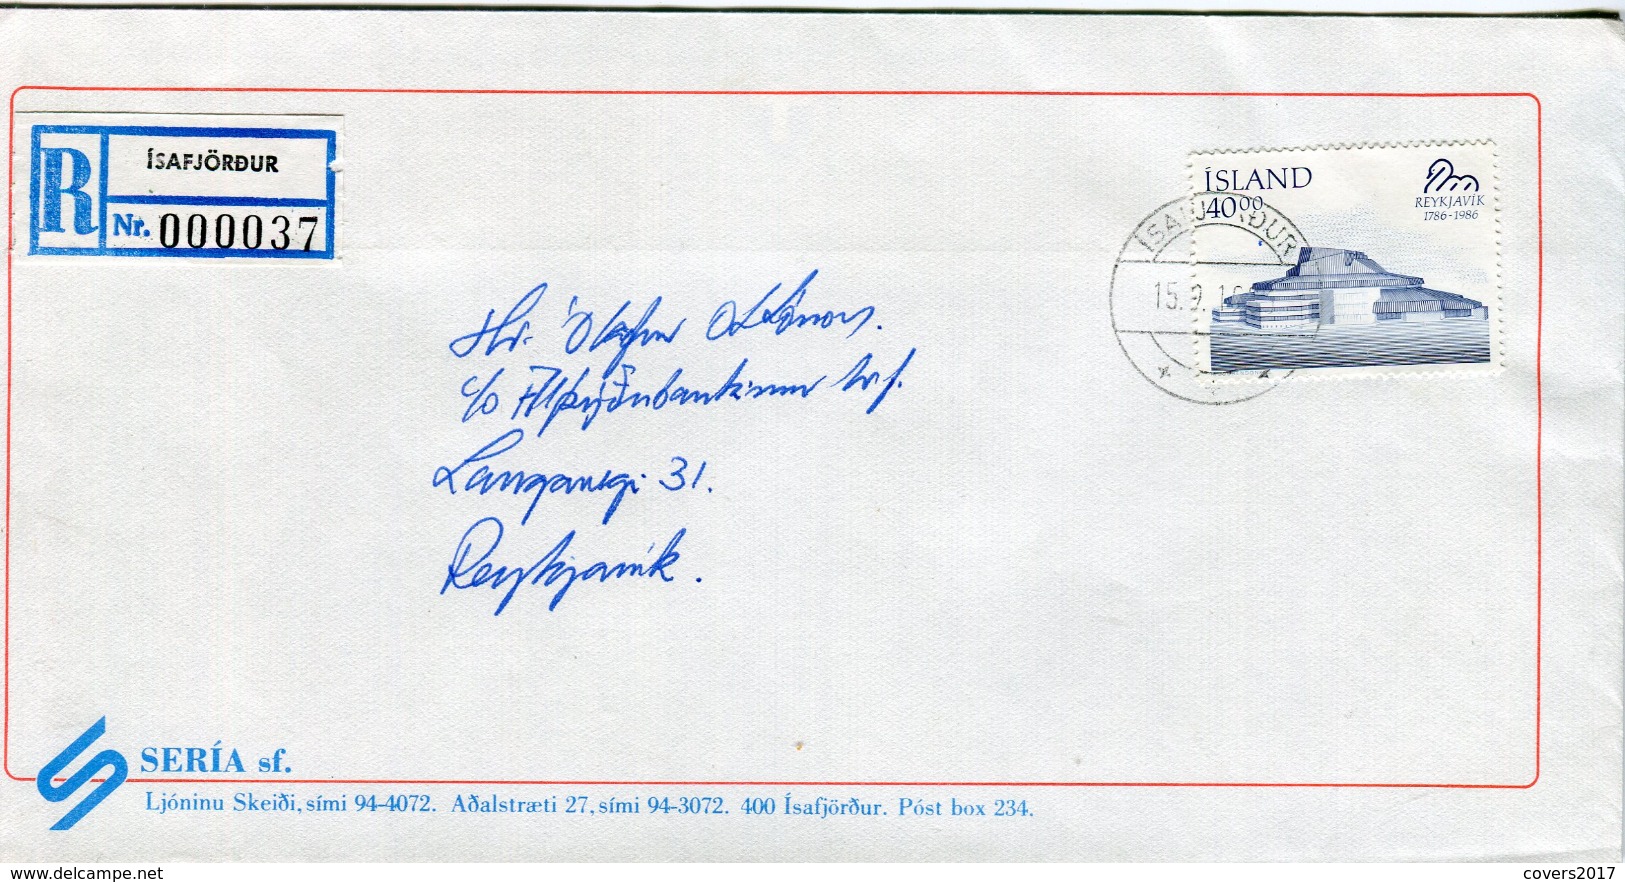 R
ÍSAFJÖRÐUR
Nr. 000037
ÍSLAND
40⁰⁰
REYKJAVÍK
1786-1986
ÍSAFJÖRÐUR
15.9.
Hr. Ólafur
c/o Alþýðubankinn h.f.
Laugavegi 31.
Reykjavík.
SERÍA sf.
Ljóninu Skeiði, sími 94-4072. Aðalstræti 27, sími 94-3072. 400 Ísafjörður. Póst box 234.
www.delcampe.net
covers2017